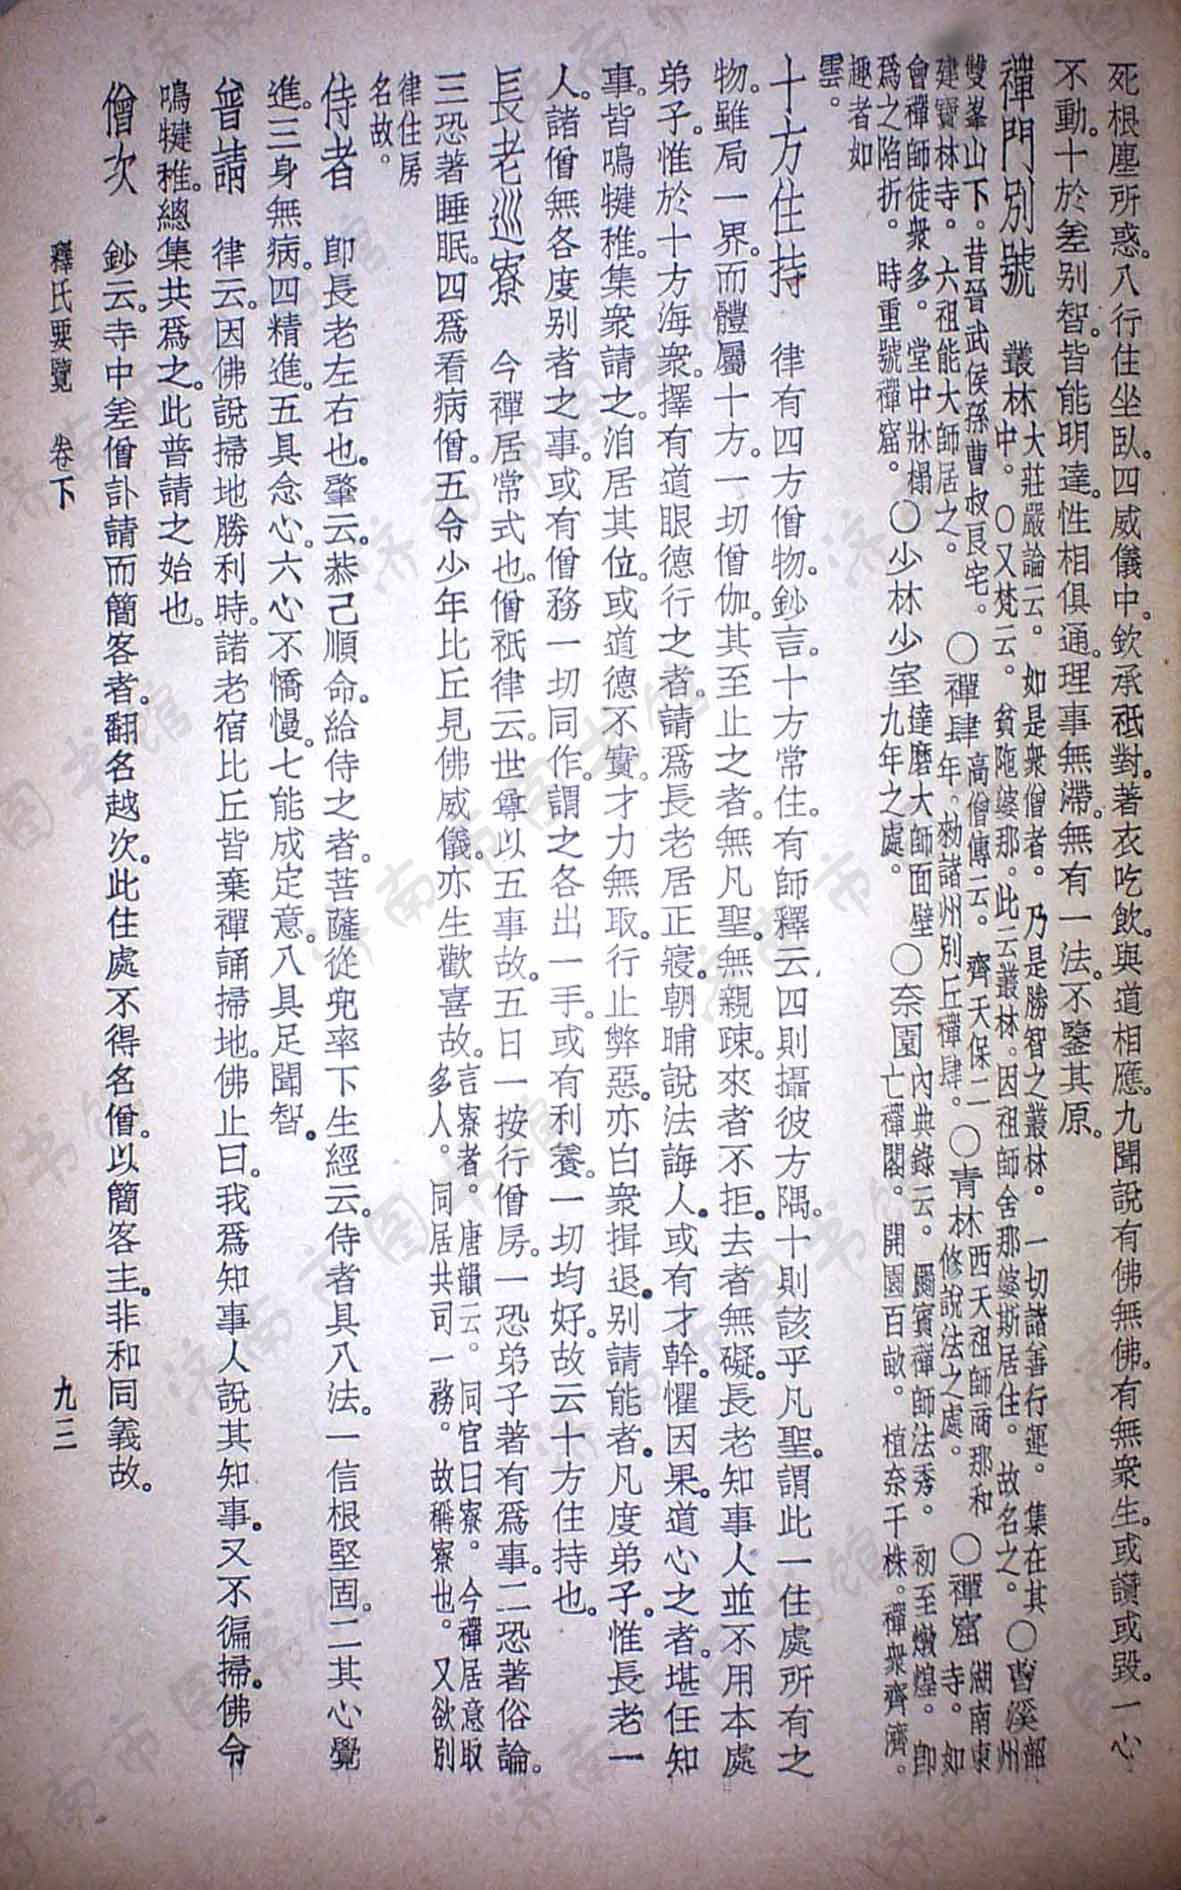 死根塵所惑。八行住坐臥。四威儀中。欽承祇對。著衣吃飲。與道相應。九聞說有佛無佛。有無衆生。或讚或毀。一心
不動。十於差別智。皆能明達。性相俱通。理事無滯。無有一法。不鑒其原。
禪門別號　叢林大莊嚴論云。如是衆僧者。乃是勝智之叢林。一切諸善行運。集在其中。〇又梵云。貧陁婆那。此云叢林。因祖師舍那婆斯居住。故名之。〇曹溪韶州
雙峯山下。昔晉武侯孫曹叔良宅。建寶林寺。六祖能大師居之。〇禪肆高僧傳云。齊天保二年。勑諸州別丘禪肆。〇青林西天祖師商那和修說法之處。〇禪窟湖南東寺。如
會禪師徒衆多。堂中牀榻爲之陷折。時重號禪窟。〇少林少室達磨大師面壁九年之處。〇奈園內典錄云。罽賓禪師法秀。初至燉煌。卽亡禪閣。開園百畝。植奈千株。禪衆齊濟。
趣者如雲。
十方住持　律有四方僧物。鈔言。十方常住。有師釋云、四則攝彼方隅。十則該乎凡聖。謂此一住處所有之
物。雖局一界。而體屬十方。一切僧伽。其至止之者。無凡聖。無親疎。來者不拒。去者無礙。長老知事人並不用本處
弟子。惟於十方海衆。擇有道眼德行之者。請爲長老居正寢。朝晡說法誨人。或有才幹。懼因果。道心之者。堪任知
事。皆鳴犍稚。集衆請之。洎居其位。或道德不實。才力無取。行止弊惡。亦白衆揖退。別請能者。凡度弟子。惟長老一
人。諸僧無各度別者之事。或有僧務一切同作。謂之各出一手。或有利養。一切均好。故云十方住持也。
長老巡寮　今禪居常式也。僧祇律云。世尊以五事故。五日一按行僧房。一恐弟子著有爲事。二恐著俗論。
三恐著睡眠。四爲看病僧。五令少年比丘見佛威儀。亦生歡喜故。言寮者。唐韻云。同官曰寮。今禪居意取多人。同居共司一務。故稱寮也。又欲別
律住房名故。
侍者　卽長老左右也。肇云。恭己順命。給侍之者。菩薩從兜率下生經云。侍者具八法。一信根堅固。二其心覺
進。三身無病。四精進。五具念心。六心不憍慢。七能成定意。八具足聞智。
普請　律云。因佛說掃地勝利時。諸老宿比丘皆棄禪誦掃地。佛止曰。我爲知事人說其知事。又不徧掃。佛令
鳴犍稚。總集共爲之。此普請之始也。
僧次　鈔云。寺中差僧訃請而簡客者。翻名越次。此住處不得名僧。以簡客主。非和同義故。
釋氏要覽　卷下　九三